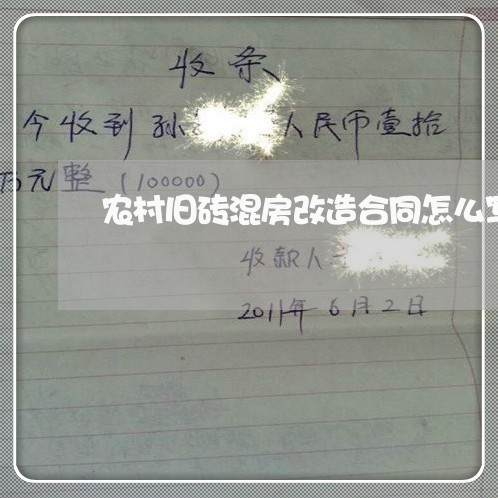 收条
今收到孙 人民币壹拾
万元整(100000)
农村旧砖混房改造合同怎么写
收款人
2011年6月2日